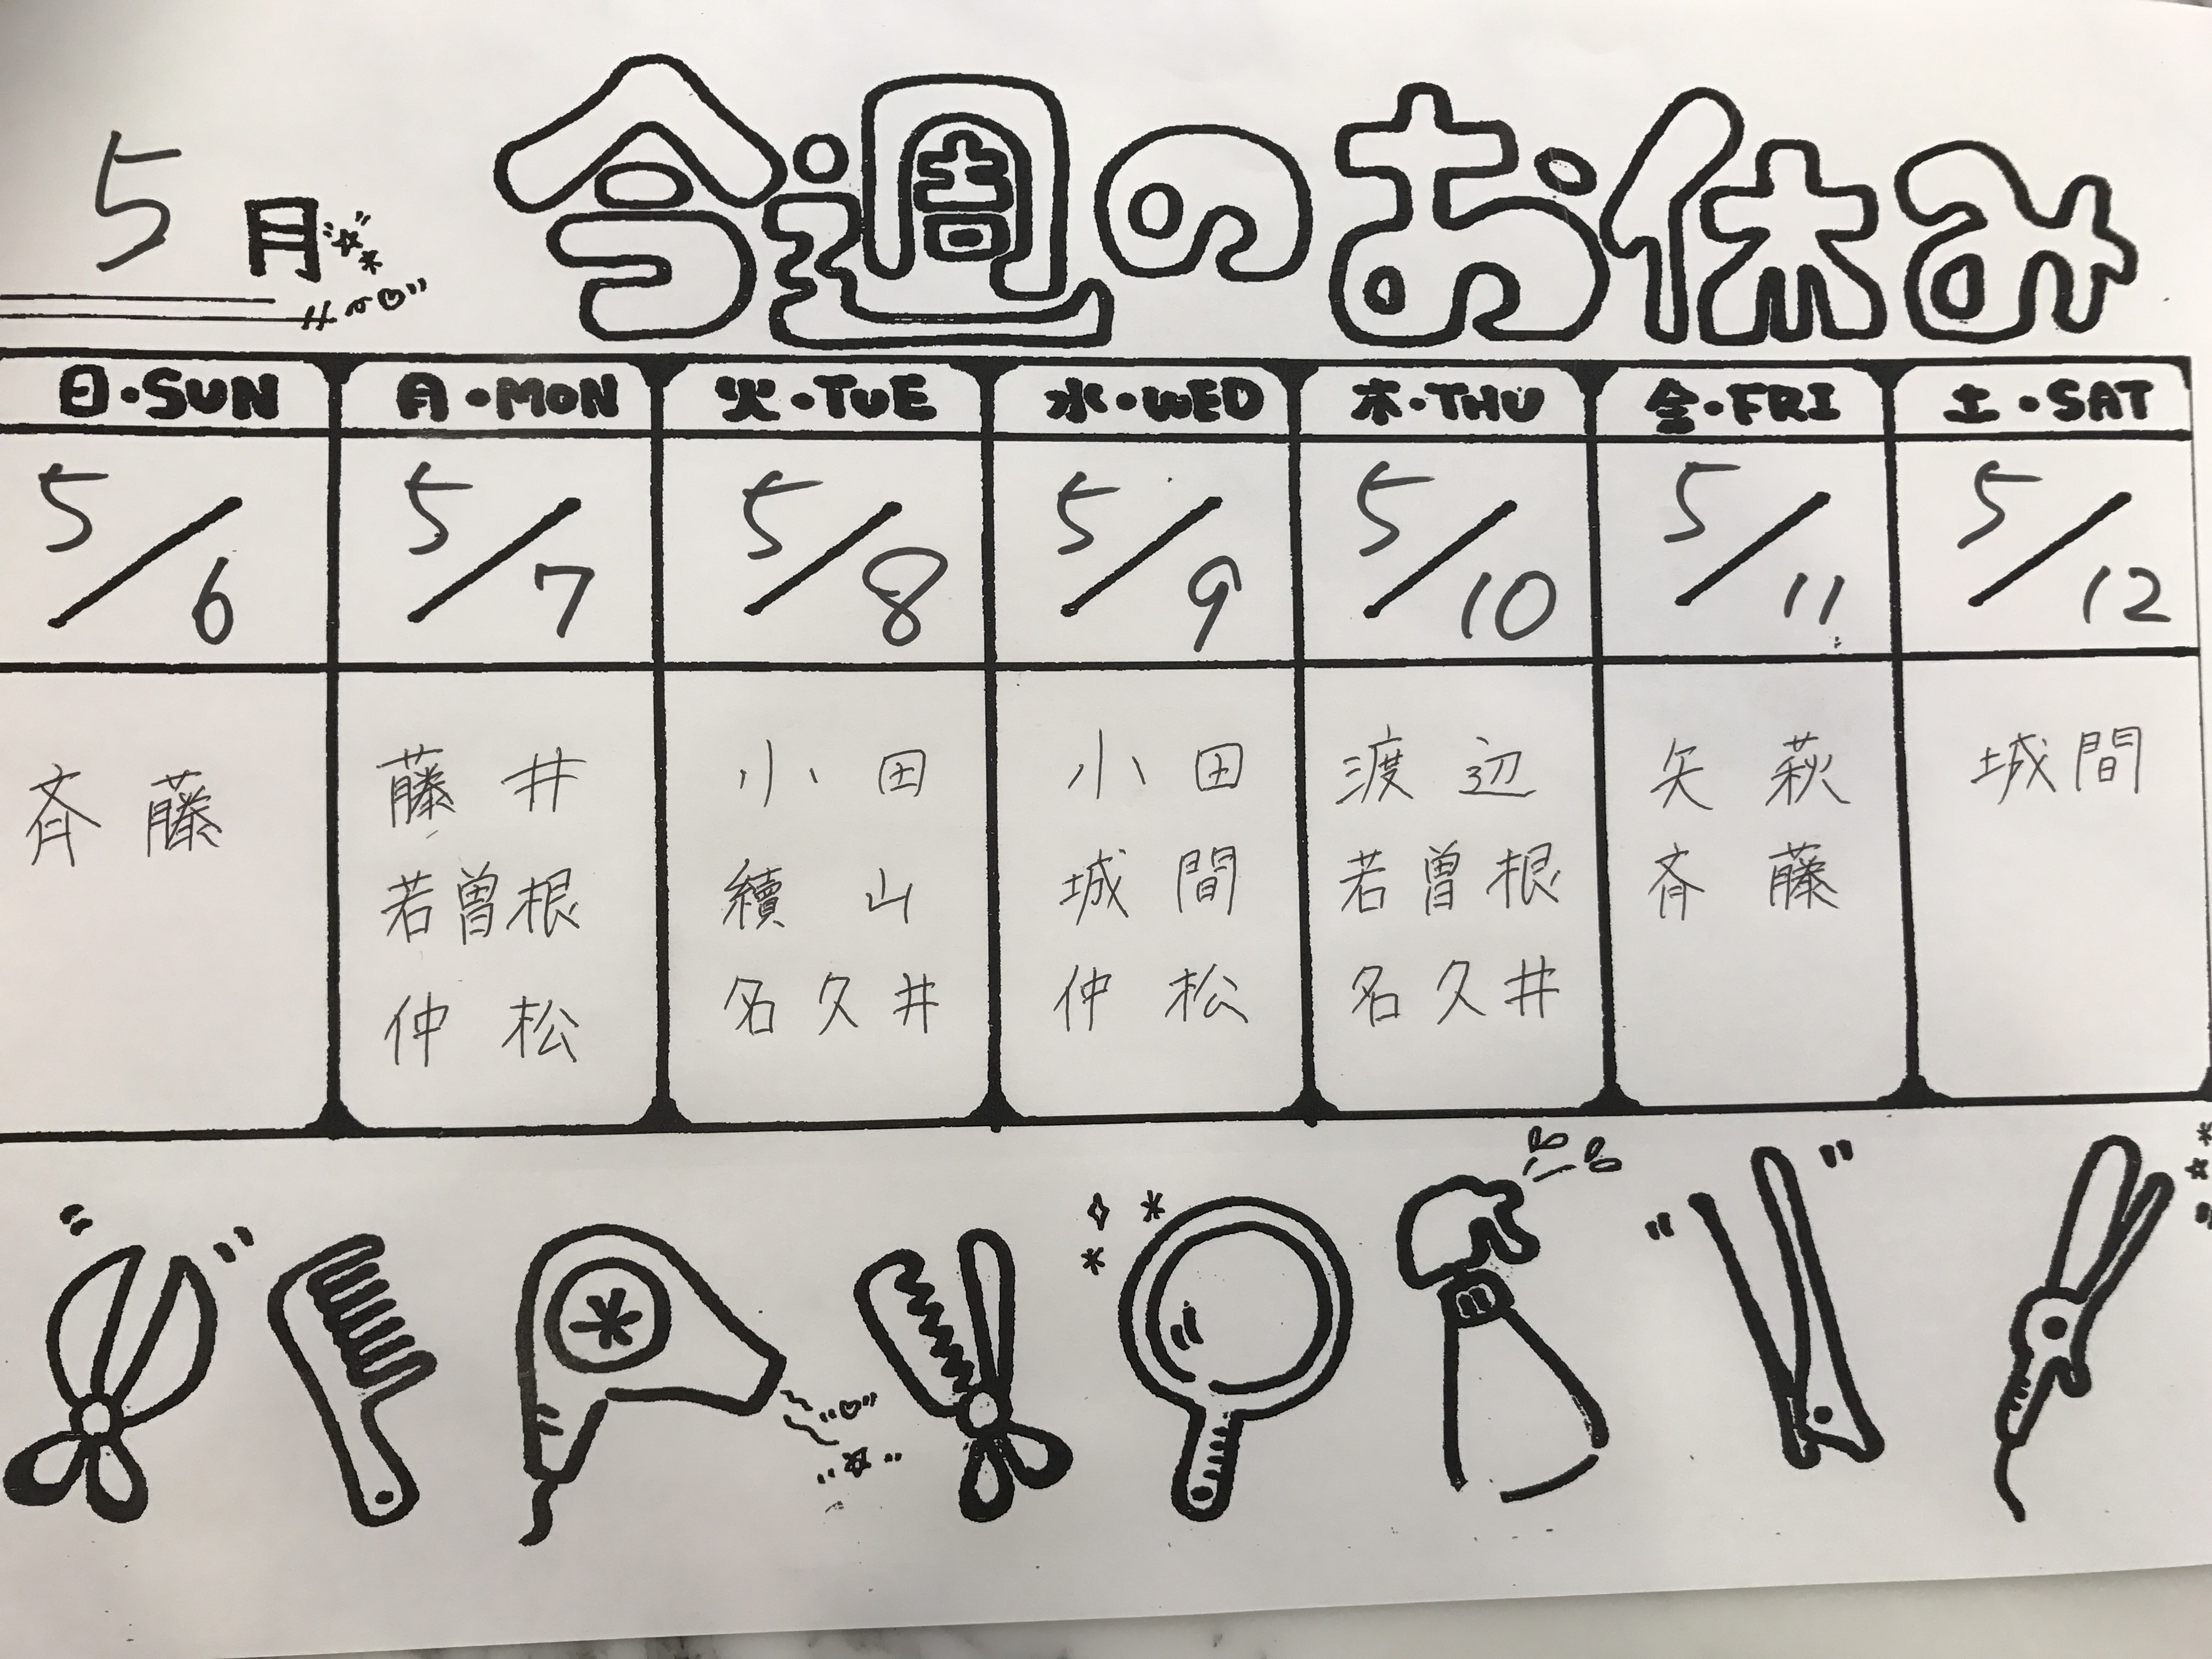 5月
今週のお休み
日・SUN 月・MON 火・TUE 水・WED 木・THU 金・FRI 土・SAT
5/6 5/7 5/8 5/9 5/10 5/11 5/12
斉藤
藤井
若曽根
仲松
小田
續山
名久井
小田
城間
仲松
渡辺
若曽根
名久井
矢萩
斉藤
城間